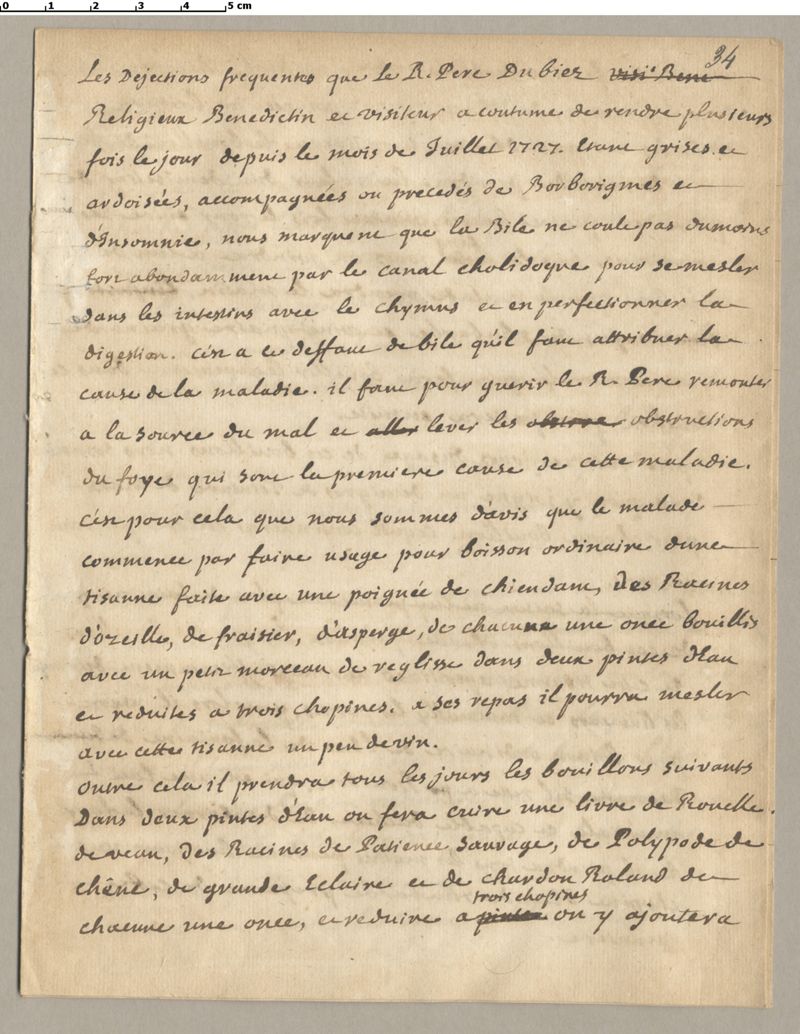 0 1 2 3 4 5 cm
34
Les Dejections frequentes que le R. Pere Dubiez visi Bene
Religieux Benedictin et visiteur a coutume de rendre plusieurs
fois le jour depuis le mois de Juillet 1727. Etant grises et
ardoisées, accompagnées ou precedés de Borborigmes et
d'Insomnie, nous marquent que la Bile ne coule pas dumoins
fort abondamment par le canal cholidoque pour se mesler
dans les intestins avec le chymus et en perfectionner la
digestion. c'est a ce deffaut de bile qu'il faut attribuer la
cause de la maladie. il faut pour guerir le R. Pere remonter
a la source du mal et aller lever les obstruc obstructions
du foye qui sont la premiere cause de cette maladie.
c'est pour cela que nous sommes d'avis que le malade
commence par faire usage pour boisson ordinaire dune
tisanne faite avec une poignée de chiendant, des Racines
d'ozeille, de fraisier, d'asperge, de chacune une once bouillis
avec un petit morceau de reglisse dans deux pintes d'Eau
et reduites a trois chopines. a ses repas il pourra mesler
avec cette tisanne un peu de vin.
outre cela il prendra tous les jours les bouillons suivants
Dans deux pintes d'Eau on fera cuire une livre de Rouelle
de veau, des Racines de Patience sauvage, de Polypode de
chêne, de grande Eclaire et de chardon Roland de
trois chopines
chacune une once, et reduire a pinte on y ajoutera